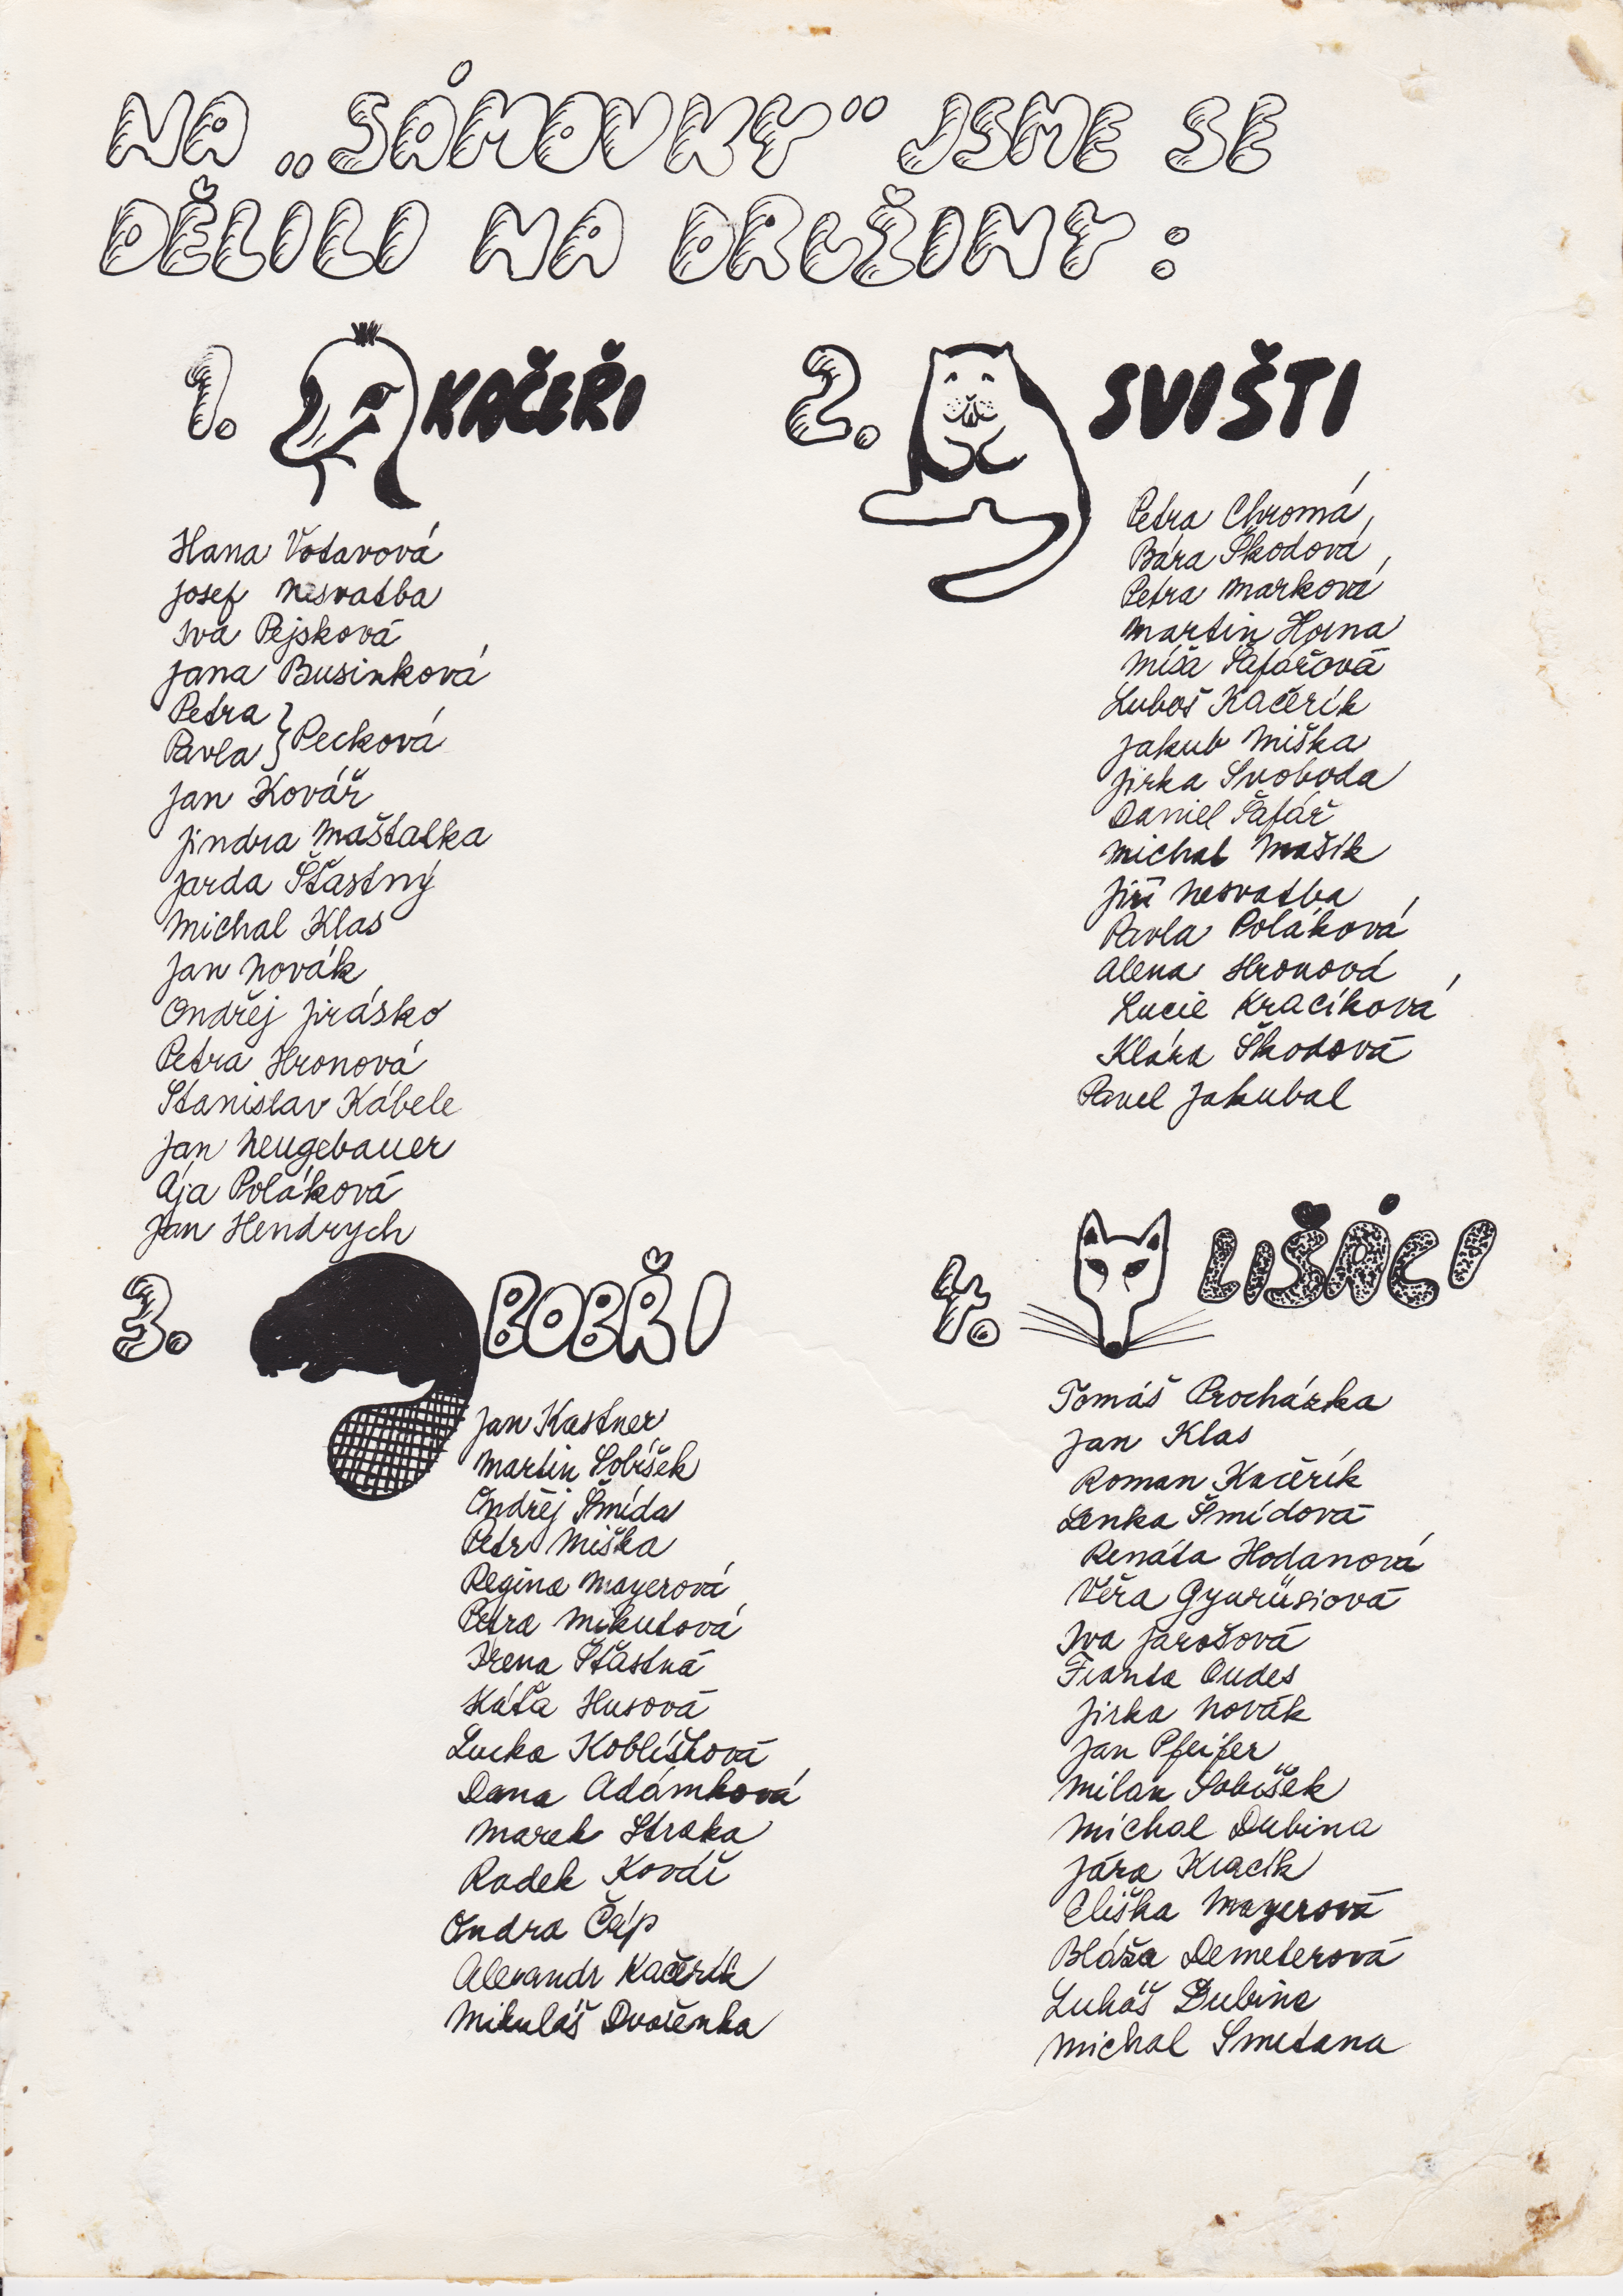 NA „SÁMOVKY“ JSME SE
DĚLILI NA DRUŽINY:
1. KAČEŘI
Hana Votavová
Josef Nesvatba
Iva Pejsková
Jana Businková
Petra } Pecková
Pavla }
Jan Kovář
Jindra Maštalka
Jarda Šťastný
Michal Klas
Jan Novák
Ondřej Jirásko
Petra Hronová
Stanislav Kábele
Jan Neugebauer
Ája Poláková
Jan Hendrych
2. SVIŠTI
Petra Chromá
Bára Škodová
Petra Marková
Martin Horna
Míša Šafářová
Luboš Kačerík
Jakub Miška
Jirka Svoboda
Daniel Šafář
Michal Mašík
Jiří Nesvatba
Pavla Poláková
Alena Hronová
Lucie Kracíková
Klára Škodová
Pavel Jakubal
3. BOBŘI
Jan Kastner
Martin Sobíšek
Ondřej Šmída
Petr Miška
Regina Mayerová
Petra Mikutová
Irena Šťastná
Káťa Husová
Lucka Koblížková
Dana Adámková
Marek Straka
Radek Kovář
Ondra Čáp
Alexandr Kačerík
Mikuláš Dvořenka
4. LIŠÁCI
Tomáš Procházka
Jan Klas
Roman Kačerík
Lenka Šmídová
Renáta Hodanová
Věra Gyurüsiová
Iva Jarošová
Franta Oudes
Jirka Novák
Jan Pfeifer
Milan Sobíšek
Michal Dubina
Jára Kracík
Eliška Mayerová
Bláža Demeterová
Lukáš Dubina
Michal Smetana